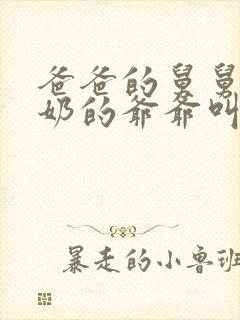 爸爸的舅舅
奶的爷爷叫
暴走的小鲁班